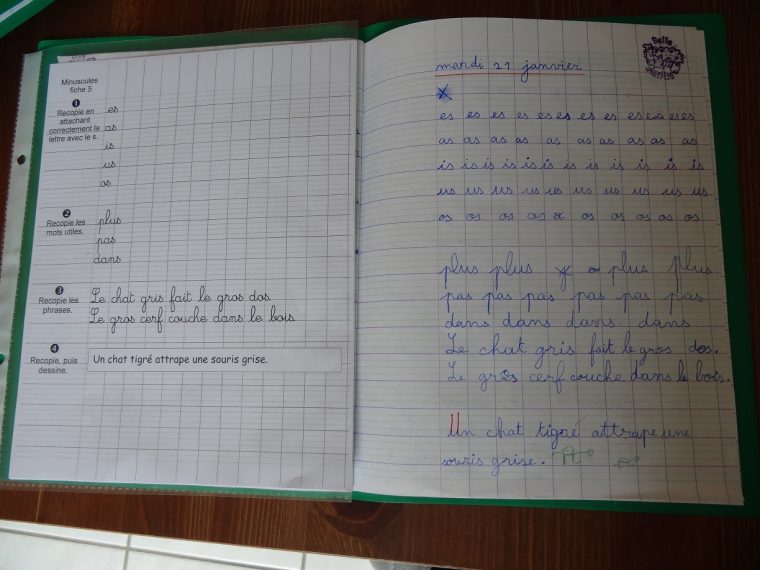 Minuscules
fiche 5
1
Recopie en
attachant
correctement la
lettre avec le s.
es
as
is
us
os
2
Recopie les
mots utiles.
plus
pas
dans
3
Recopie les
phrases.
Le chat gris fait le gros dos.
Le gros cerf couche dans le bois.
4
Recopie, puis
dessine.
Un chat tigré attrape une souris grise.
Belle
mardi 21 janvier
es es es es es es es es es es es es es
as as as as as as as as as as
is is is is is is is is is is is is is
us us us us us us us us us us us
os os os os os os os os os os
plus plus plus plus
pas pas pas pas pas pas
dans dans dans dans
Le chat gris fait le gros dos.
Le gros cerf couche dans le bois.
Un chat tigré attrape une
souris grise.